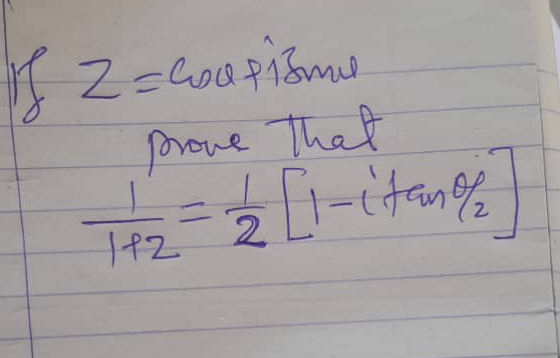 If Z = cosθ + i sinθ
prove that
1/(1+z) = 1/2 [1 - i tan θ/2]